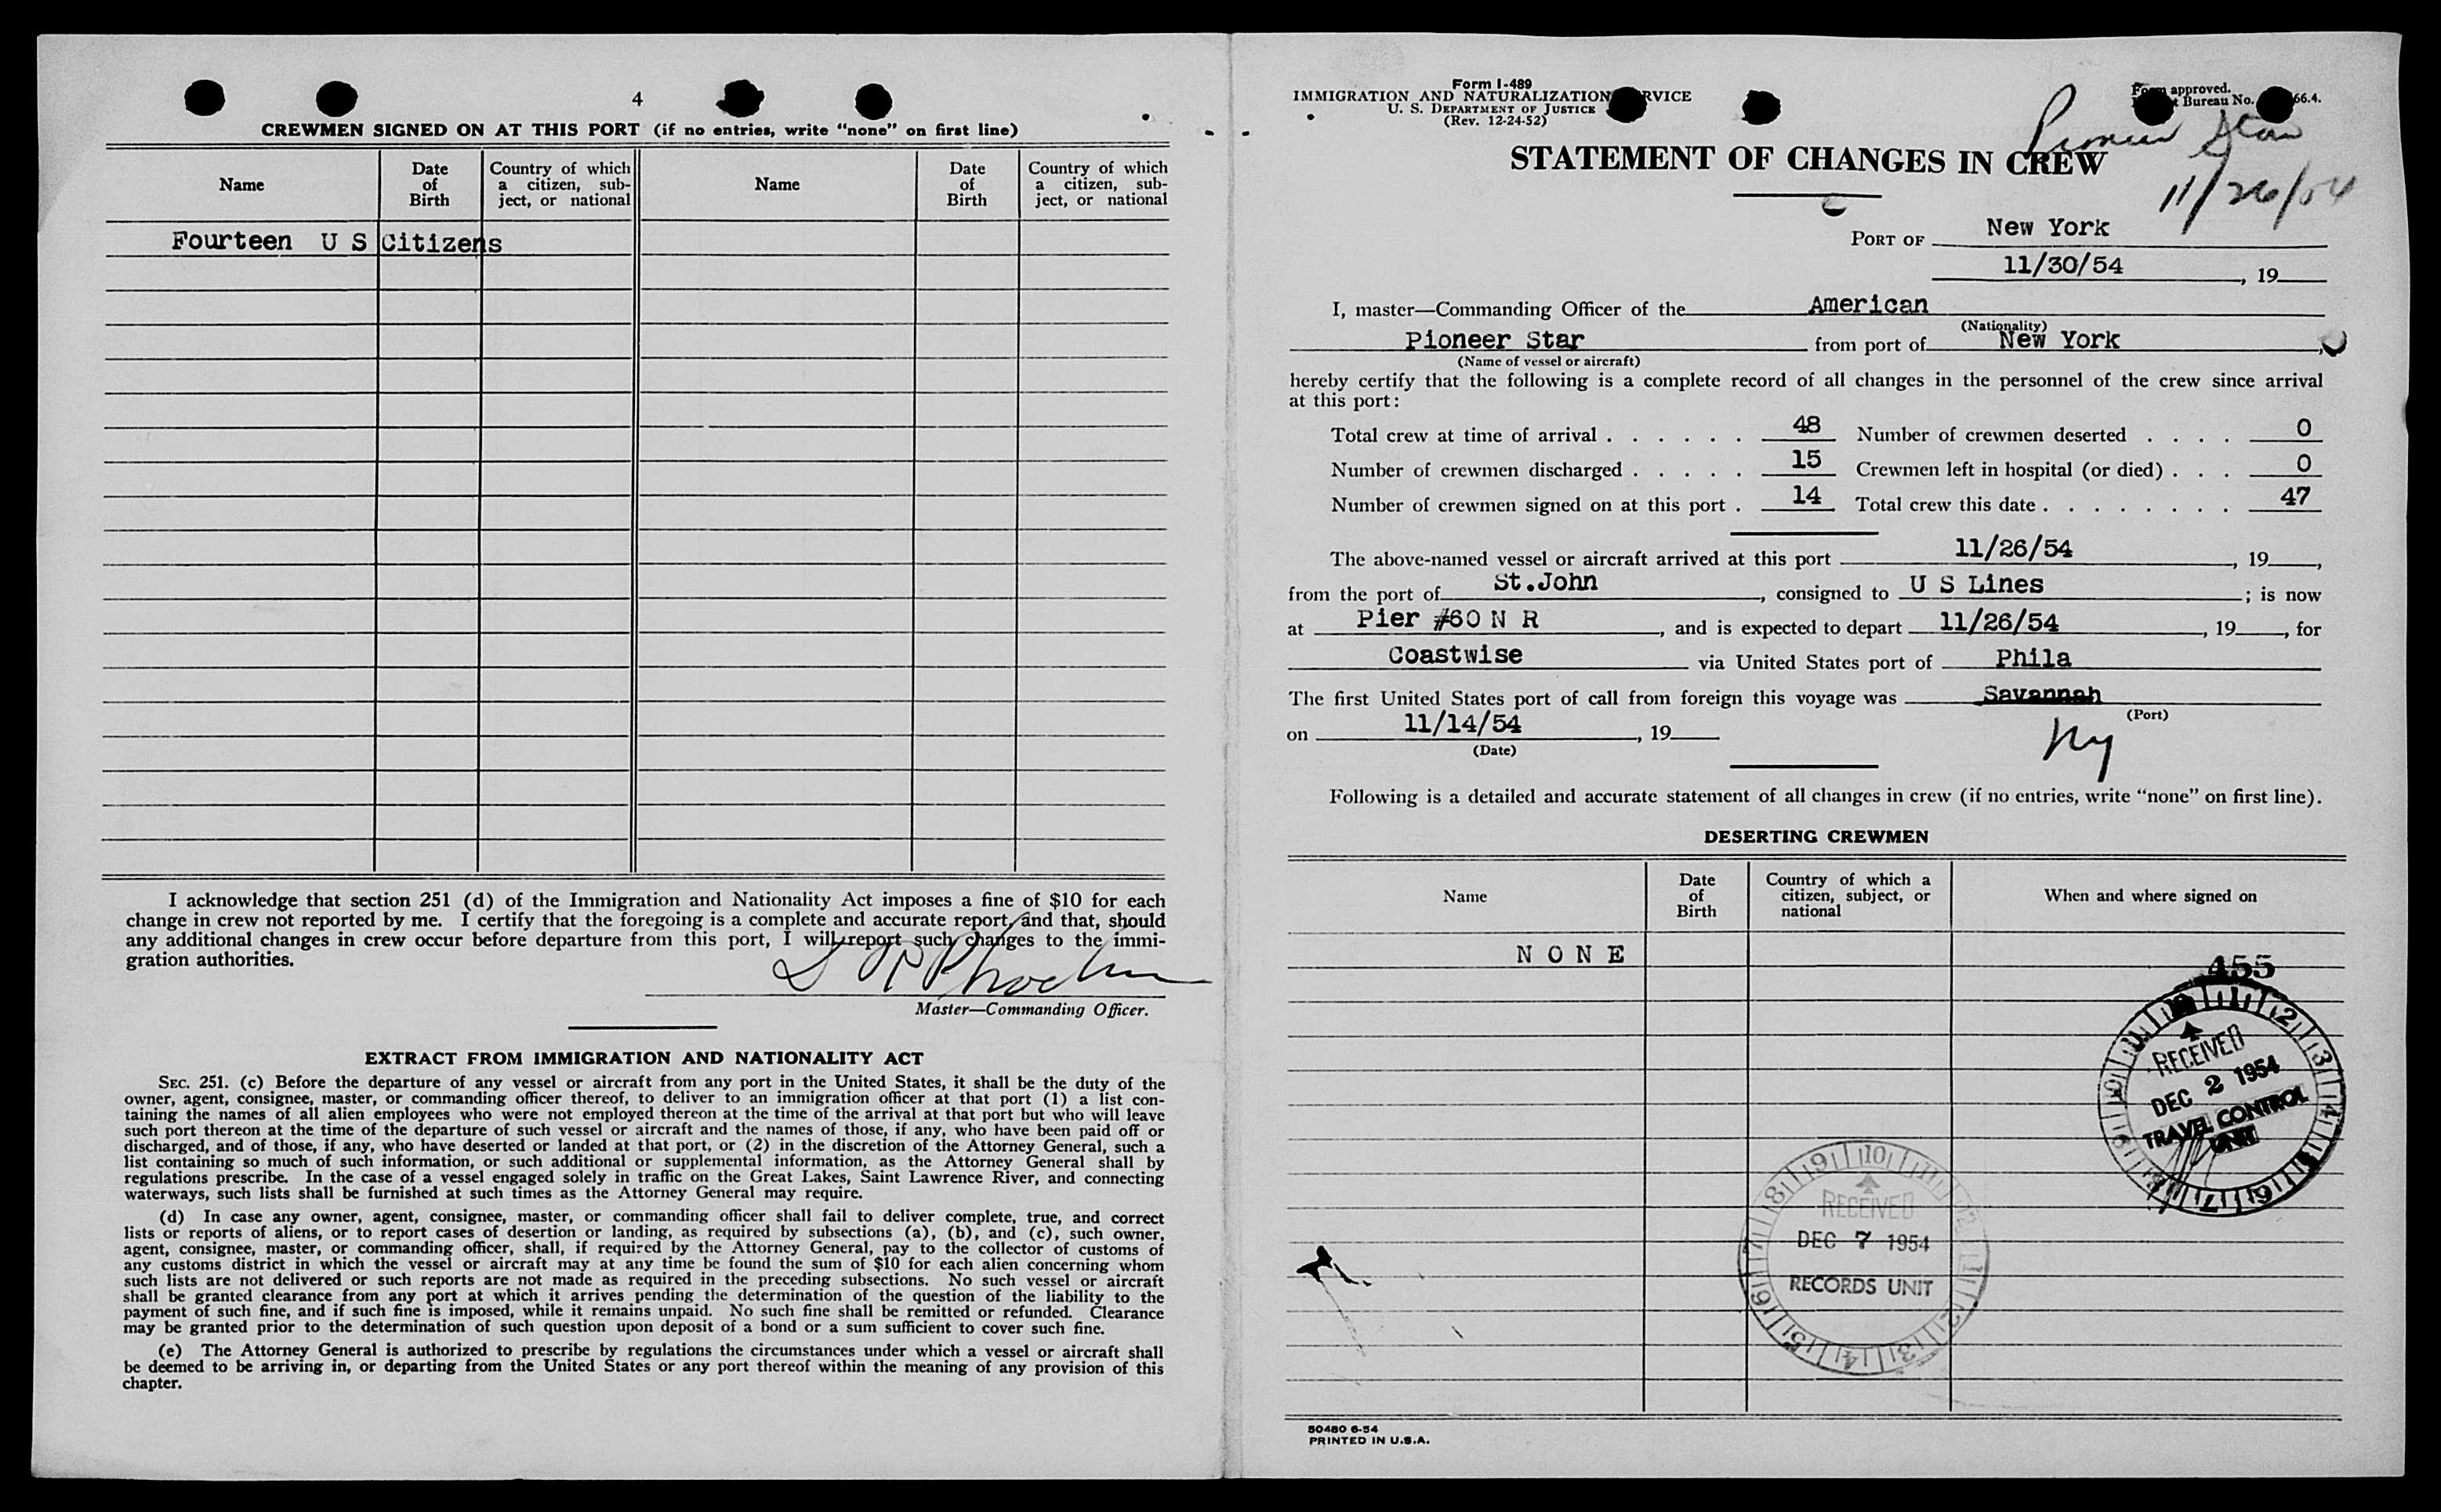 4
CREWMEN SIGNED ON AT THIS PORT (if no entries, write "none" on first line)
Name
Date of Birth
Country of which a citizen, subject, or national
Name
Date of Birth
Country of which a citizen, subject, or national
Fourteen U S Citizens
I acknowledge that section 251 (d) of the Immigration and Nationality Act imposes a fine of $10 for each
change in crew not reported by me. I certify that the foregoing is a complete and accurate report, and that, should
any additional changes in crew occur before departure from this port, I will report such changes to the immi-
gration authorities.
Master—Commanding Officer.
EXTRACT FROM IMMIGRATION AND NATIONALITY ACT
SEC. 251. (c) Before the departure of any vessel or aircraft from any port in the United States, it shall be the duty of the
owner, agent, consignee, master, or commanding officer thereof, to deliver to an immigration officer at that port (1) a list con-
taining the names of all alien employees who were not employed thereon at the time of the arrival at that port but who will leave
such port thereon at the time of the departure of such vessel or aircraft and the names of those, if any, who have been paid off or
discharged, and of those, if any, who have deserted or landed at that port, or (2) in the discretion of the Attorney General, such a
list containing so much of such information, or such additional or supplemental information, as the Attorney General shall by
regulations prescribe. In the case of a vessel engaged solely in traffic on the Great Lakes, Saint Lawrence River, and connecting
waterways, such lists shall be furnished at such times as the Attorney General may require.
(d) In case any owner, agent, consignee, master, or commanding officer shall fail to deliver complete, true, and correct
lists or reports of aliens, or to report cases of desertion or landing, as required by subsections (a), (b), and (c), such owner,
agent, consignee, master, or commanding officer, shall, if required by the Attorney General, pay to the collector of customs of
any customs district in which the vessel or aircraft may at any time be found the sum of $10 for each alien concerning whom
such lists are not delivered or such reports are not made as required in the preceding subsections. No such vessel or aircraft
shall be granted clearance from any port at which it arrives pending the determination of the question of the liability to the
payment of such fine, and if such fine is imposed, while it remains unpaid. No such fine shall be remitted or refunded. Clearance
may be granted prior to the determination of such question upon deposit of a bond or a sum sufficient to cover such fine.
(e) The Attorney General is authorized to prescribe by regulations the circumstances under which a vessel or aircraft shall
be deemed to be arriving in, or departing from the United States or any port thereof within the meaning of any provision of this
chapter.
Form I-489
IMMIGRATION AND NATURALIZATION RVICE
U. S. DEPARTMENT OF JUSTICE
(Rev. 12-24-52)
approved.
Bureau No. 66.4.
Pioneer Star
11/26/54
STATEMENT OF CHANGES IN CREW
PORT OF New York
11/30/54, 19
I, master—Commanding Officer of the American
(Nationality)
Pioneer Star from port of New York,
(Name of vessel or aircraft)
hereby certify that the following is a complete record of all changes in the personnel of the crew since arrival
at this port:
Total crew at time of arrival . . . . . . 48 Number of crewmen deserted . . . . 0
Number of crewmen discharged . . . . . 15 Crewmen left in hospital (or died) . . . 0
Number of crewmen signed on at this port . 14 Total crew this date . . . . . . . . 47
The above-named vessel or aircraft arrived at this port 11/26/54, 19,
from the port of St.John, consigned to U S Lines; is now
at Pier #60 N R, and is expected to depart 11/26/54, 19, for
Coastwise via United States port of Phila
The first United States port of call from foreign this voyage was Savannah
(Port)
on 11/14/54, 19
(Date)
NY
Following is a detailed and accurate statement of all changes in crew (if no entries, write "none" on first line).
DESERTING CREWMEN
Name
Date of Birth
Country of which a citizen, subject, or national
When and where signed on
N O N E
455
RECEIVED
DEC 2 1954
TRAVEL CONTROL
UNIT
RECEIVED
DEC 7 1954
RECORDS UNIT
50480 6-54
PRINTED IN U.S.A.